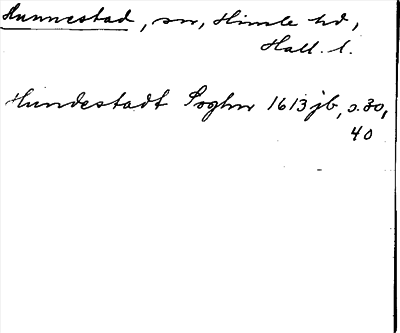 Hunnestad, sn, Himle hd,
Hall. l.
Hundestadt Soghn 1613 jb, s. 30,
40